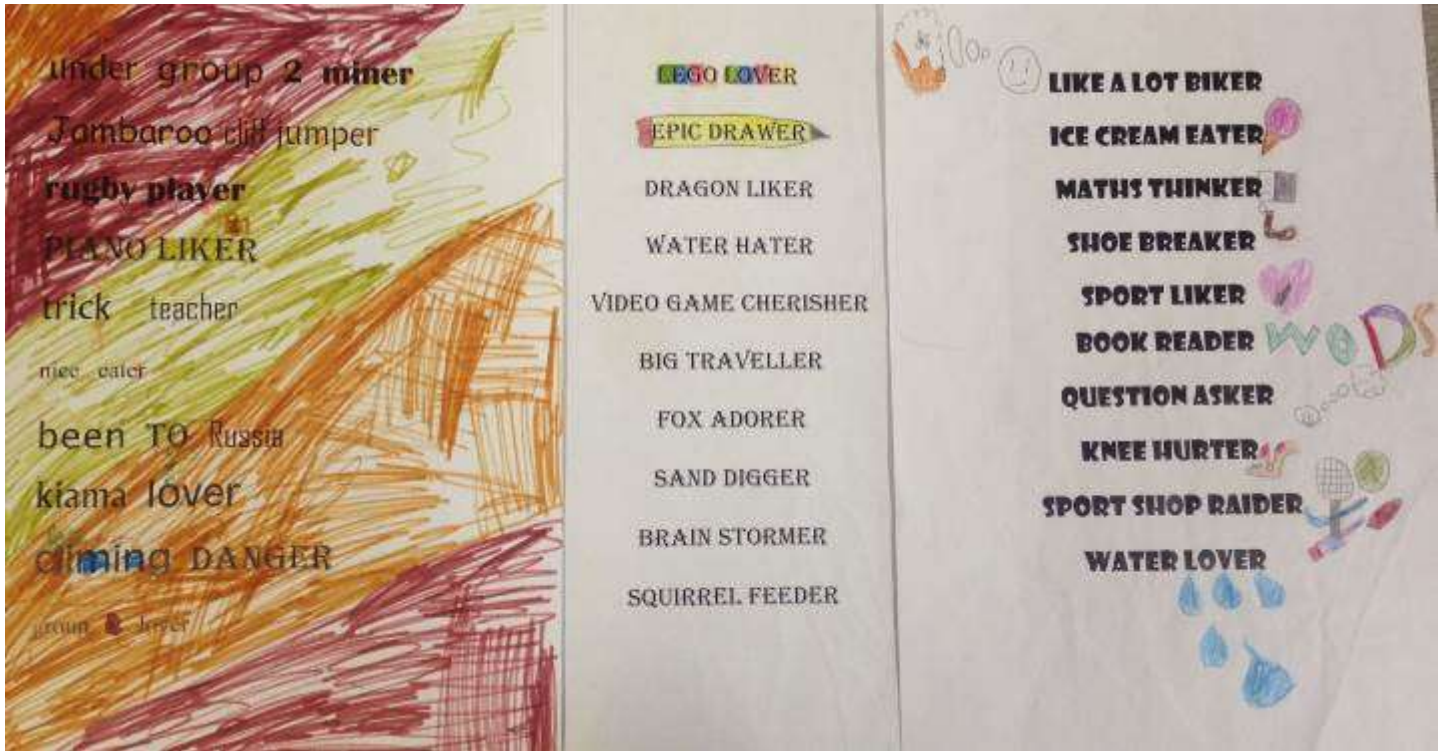 under group 2 miner
Jambaroo cliff jumper
rugby player
PIANO LIKER
trick teacher
nice eater
been TO Russia
kiama lover
climing DANGER
group 2 lover
LEGO LOVER
EPIC DRAWER
DRAGON LIKER
WATER HATER
VIDEO GAME CHERISHER
BIG TRAVELLER
FOX ADORER
SAND DIGGER
BRAIN STORMER
SQUIRREL FEEDER
LIKE A LOT BIKER
ICE CREAM EATER
MATHS THINKER
SHOE BREAKER
SPORT LIKER
BOOK READER WODS
QUESTION ASKER
KNEE HURTER
SPORT SHOP RAIDER
WATER LOVER